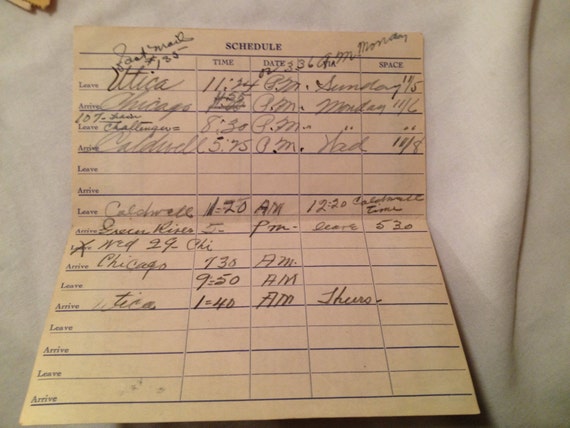 Fast mail
SCHEDULE
#35
or 5 36 A.M. Monday
TIME DATE VIA SPACE
Leave Utica 11:24 P.M. Sunday 11/5
Arrive Chicago P.M. Monday 11/6
107- Leave Challenger= 8:30 P.M. " "
Arrive Caldwell 5:25 P.M. Wed 11/8
Leave
Arrive
Leave Caldwell 11=20 AM 12:20 Caldwell time
Arrive Green River 5- Pm- leave 530
Leave Wed 29 Chi
Arrive Chicago 730 AM.
9=50 AM
Arrive Utica 1=40 AM Thurs-
Leave
Arrive
Leave
Arrive